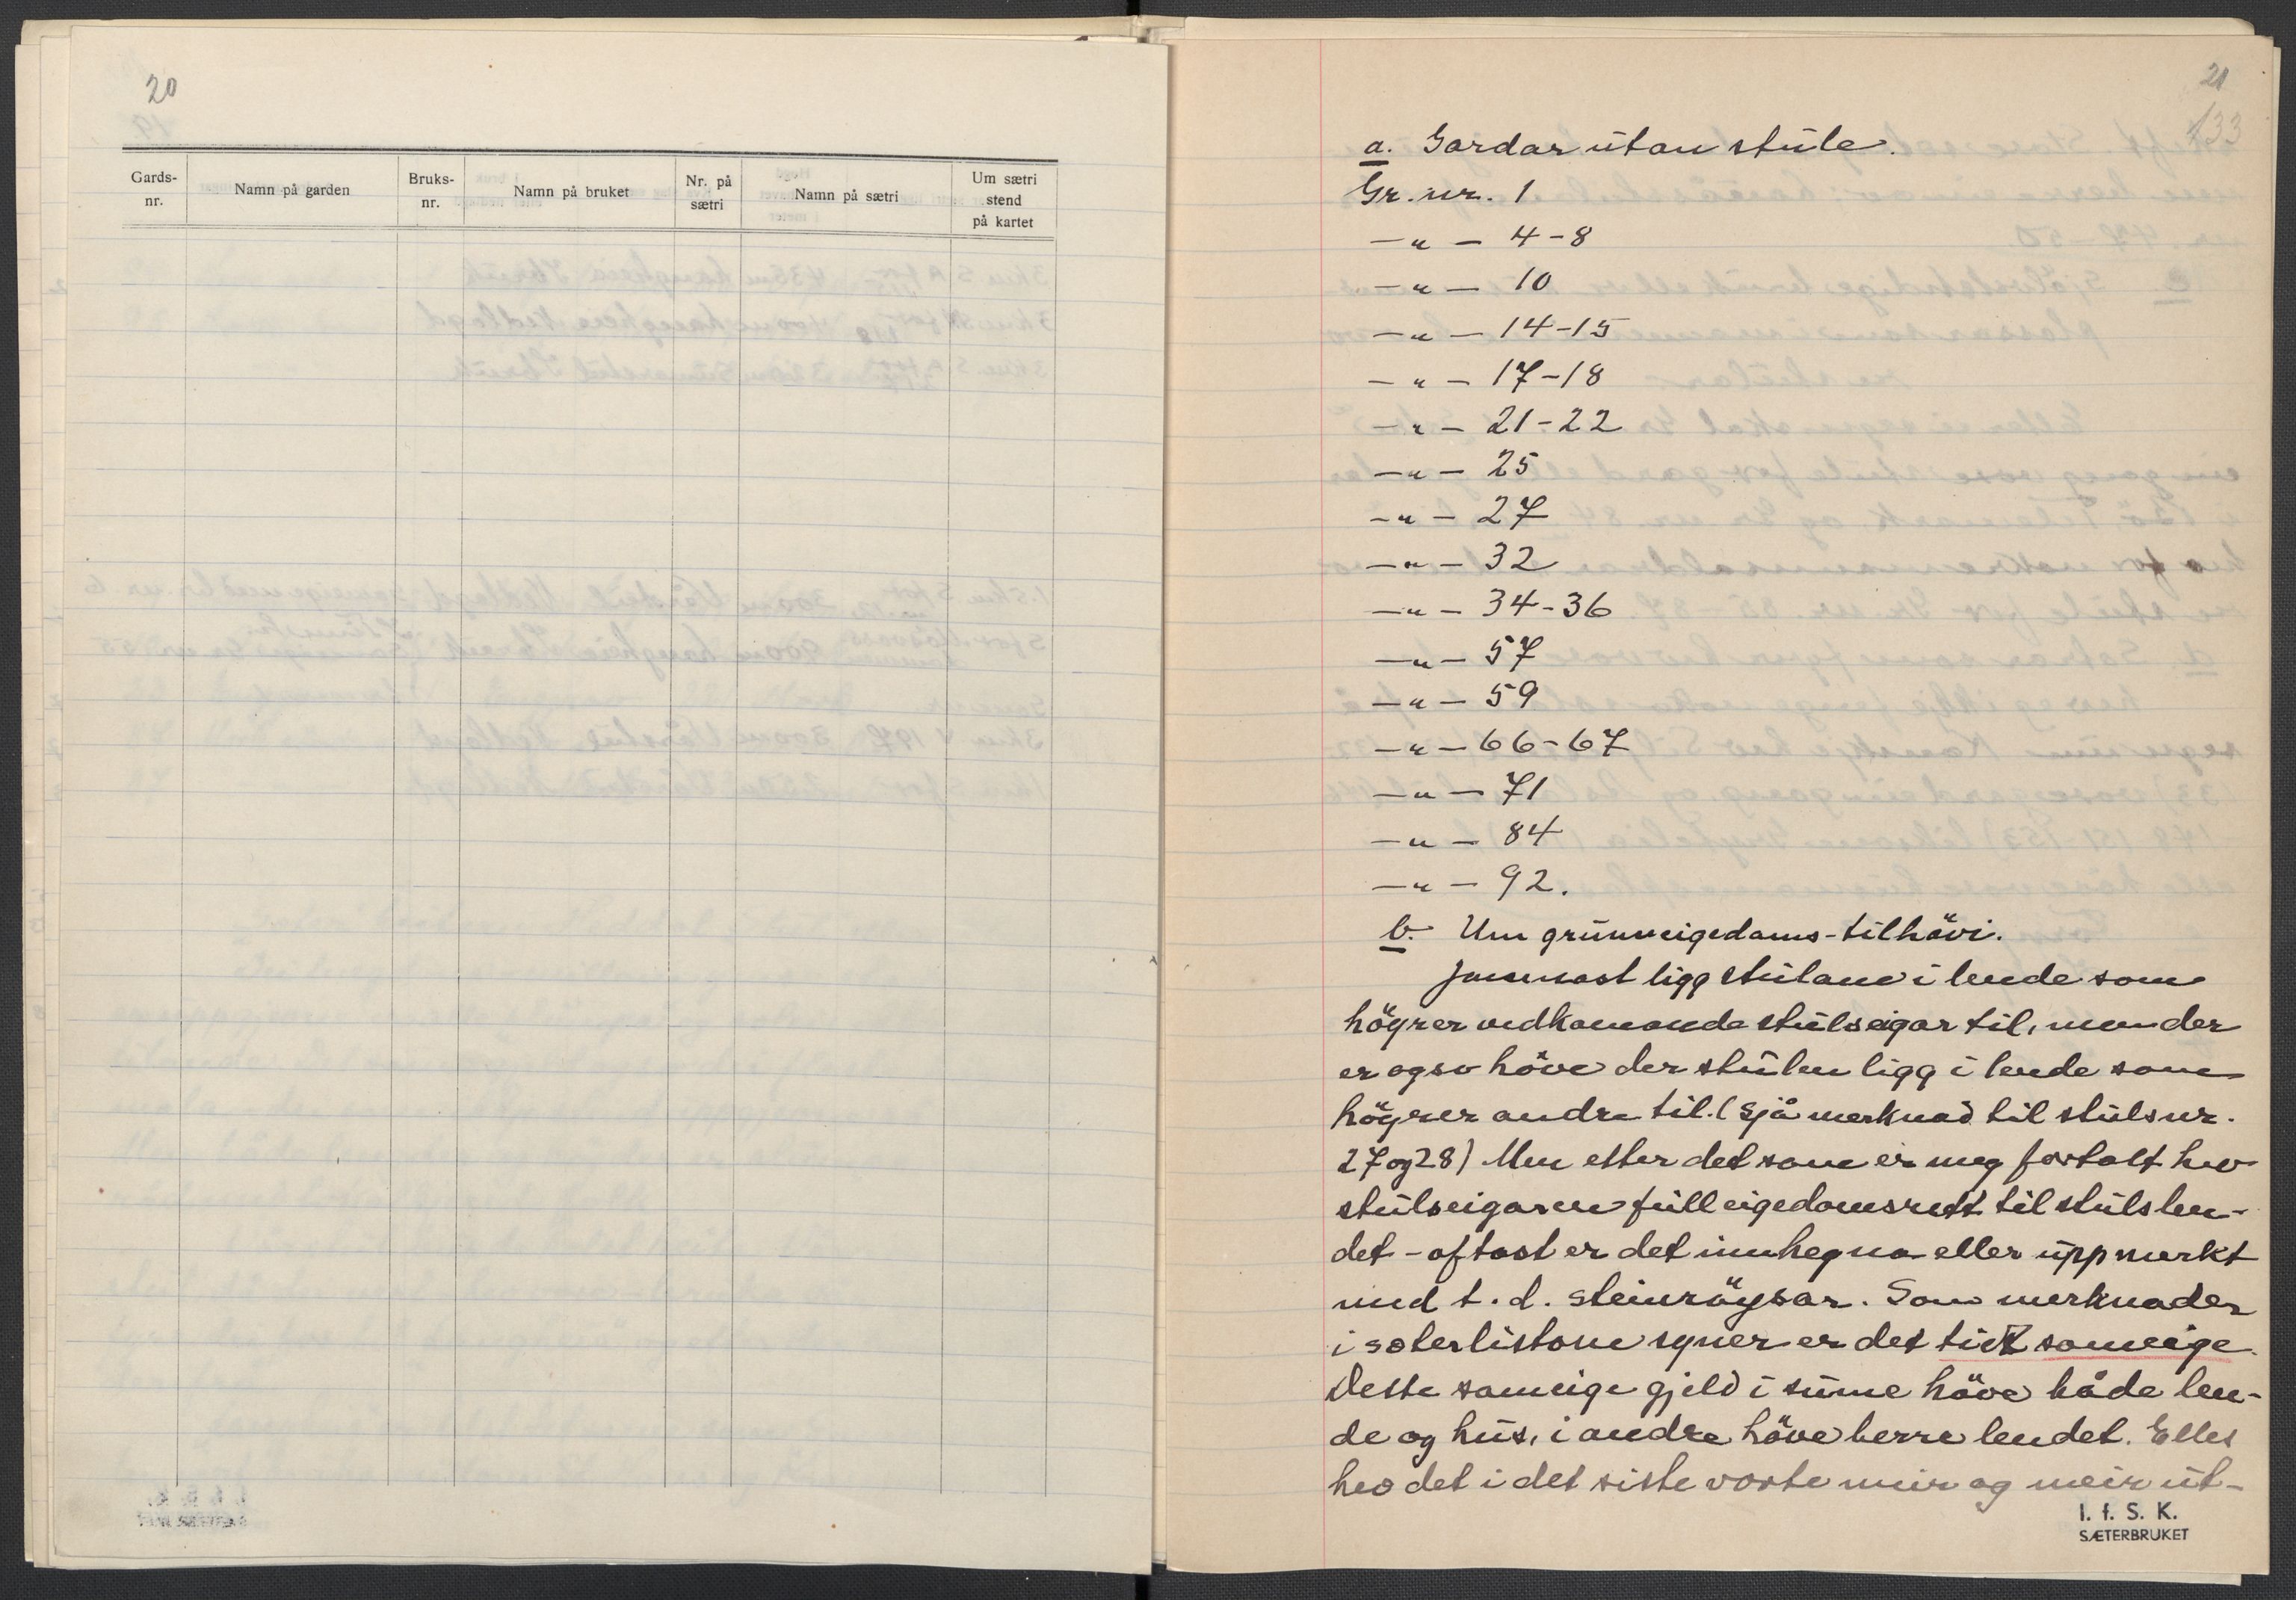 20
Gards-nr.
Namn på garden
Bruks-nr.
Namn på bruket
Nr. på sætri
Namn på sætri
Um sætri stend på kartet
21
133
a. Gardar utan stule.
Gr. nr. 1
—"— 4-8
—"— 10
—"— 14-15
—"— 17-18
—"— 21-22
—"— 25
—"— 27
—"— 32
—"— 34-36
—"— 57
—"— 59
—"— 66-67
—"— 71
—"— 84
—"— 92.
b. Um grunneigedams-tilhövi.
Jamnast ligg stulane i lende som
höyrer vedkomande stulseigar til, men der
er ogso höve der stulen ligg i lende som
höyrer andre til. (Sjå merknad til stulsnr.
27 og 28) Men etter det som er meg fortalt hev
stulseigaren full eigedomsrett til stulslen-
det - oftast er det innhegna eller uppmerkt
med t. d. steinröysar. Som merknader
i seterlistone syner er det tidt sameige.
Dette sameige gjeld i sume höve både len-
de og hus, i andre höve berre lendet. Elles
hev det i det siste vorte meir og meir ut-
I. f. S. K.
SÆTERBRUKET